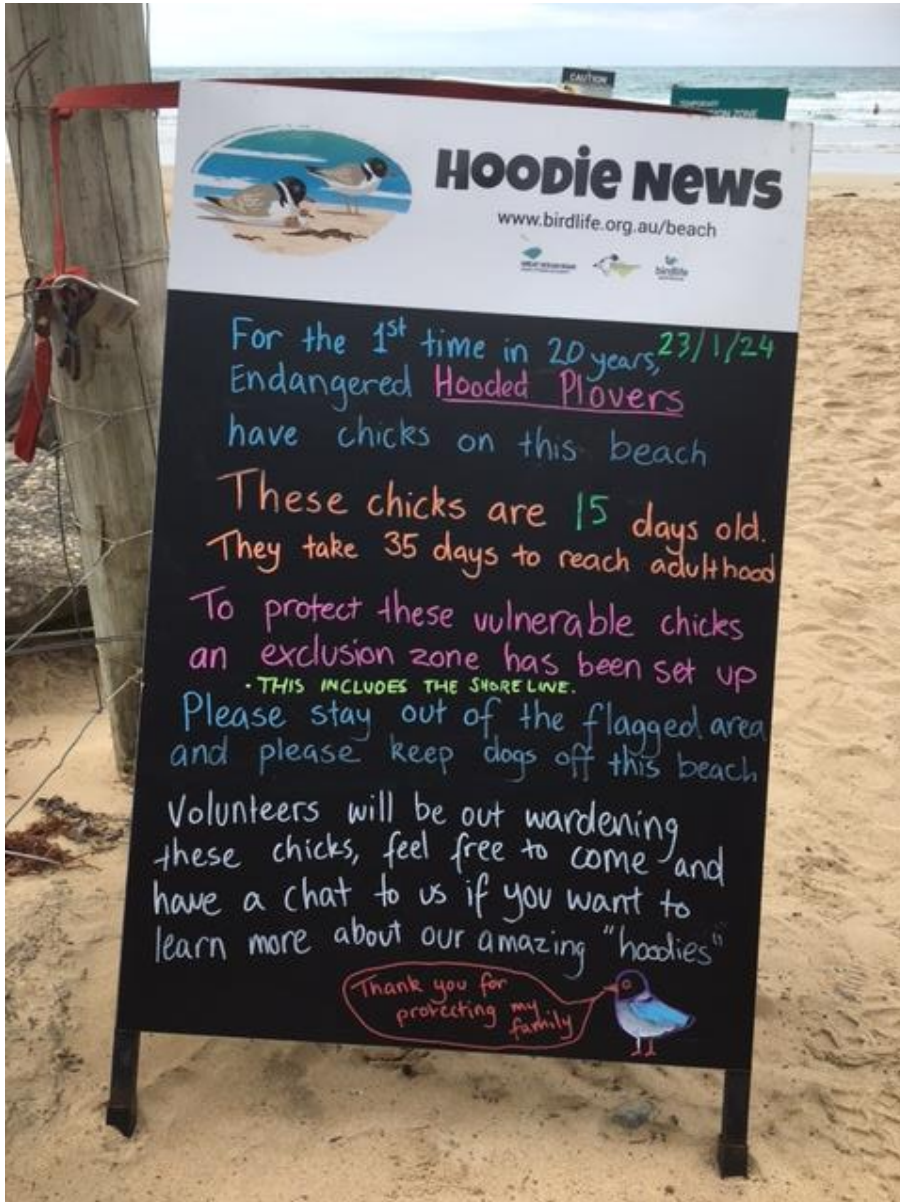 CAUTION
TEMPORARY
ION ZONE
HOODIE NEWS
www.birdlife.org.au/beach
birdlife
For the 1st time in 20 years, 23/1/24
Endangered Hooded Plovers
have chicks on this beach
These chicks are 15 days old.
They take 35 days to reach adulthood
To protect these vulnerable chicks
an exclusion zone has been set up
• THIS INCLUDES THE SHORE LINE.
Please stay out of the flagged area
and please keep dogs off this beach
Volunteers will be out wardening
these chicks, feel free to come and
have a chat to us if you want to
learn more about our amazing "hoodies"
Thank you for
protecting my
family